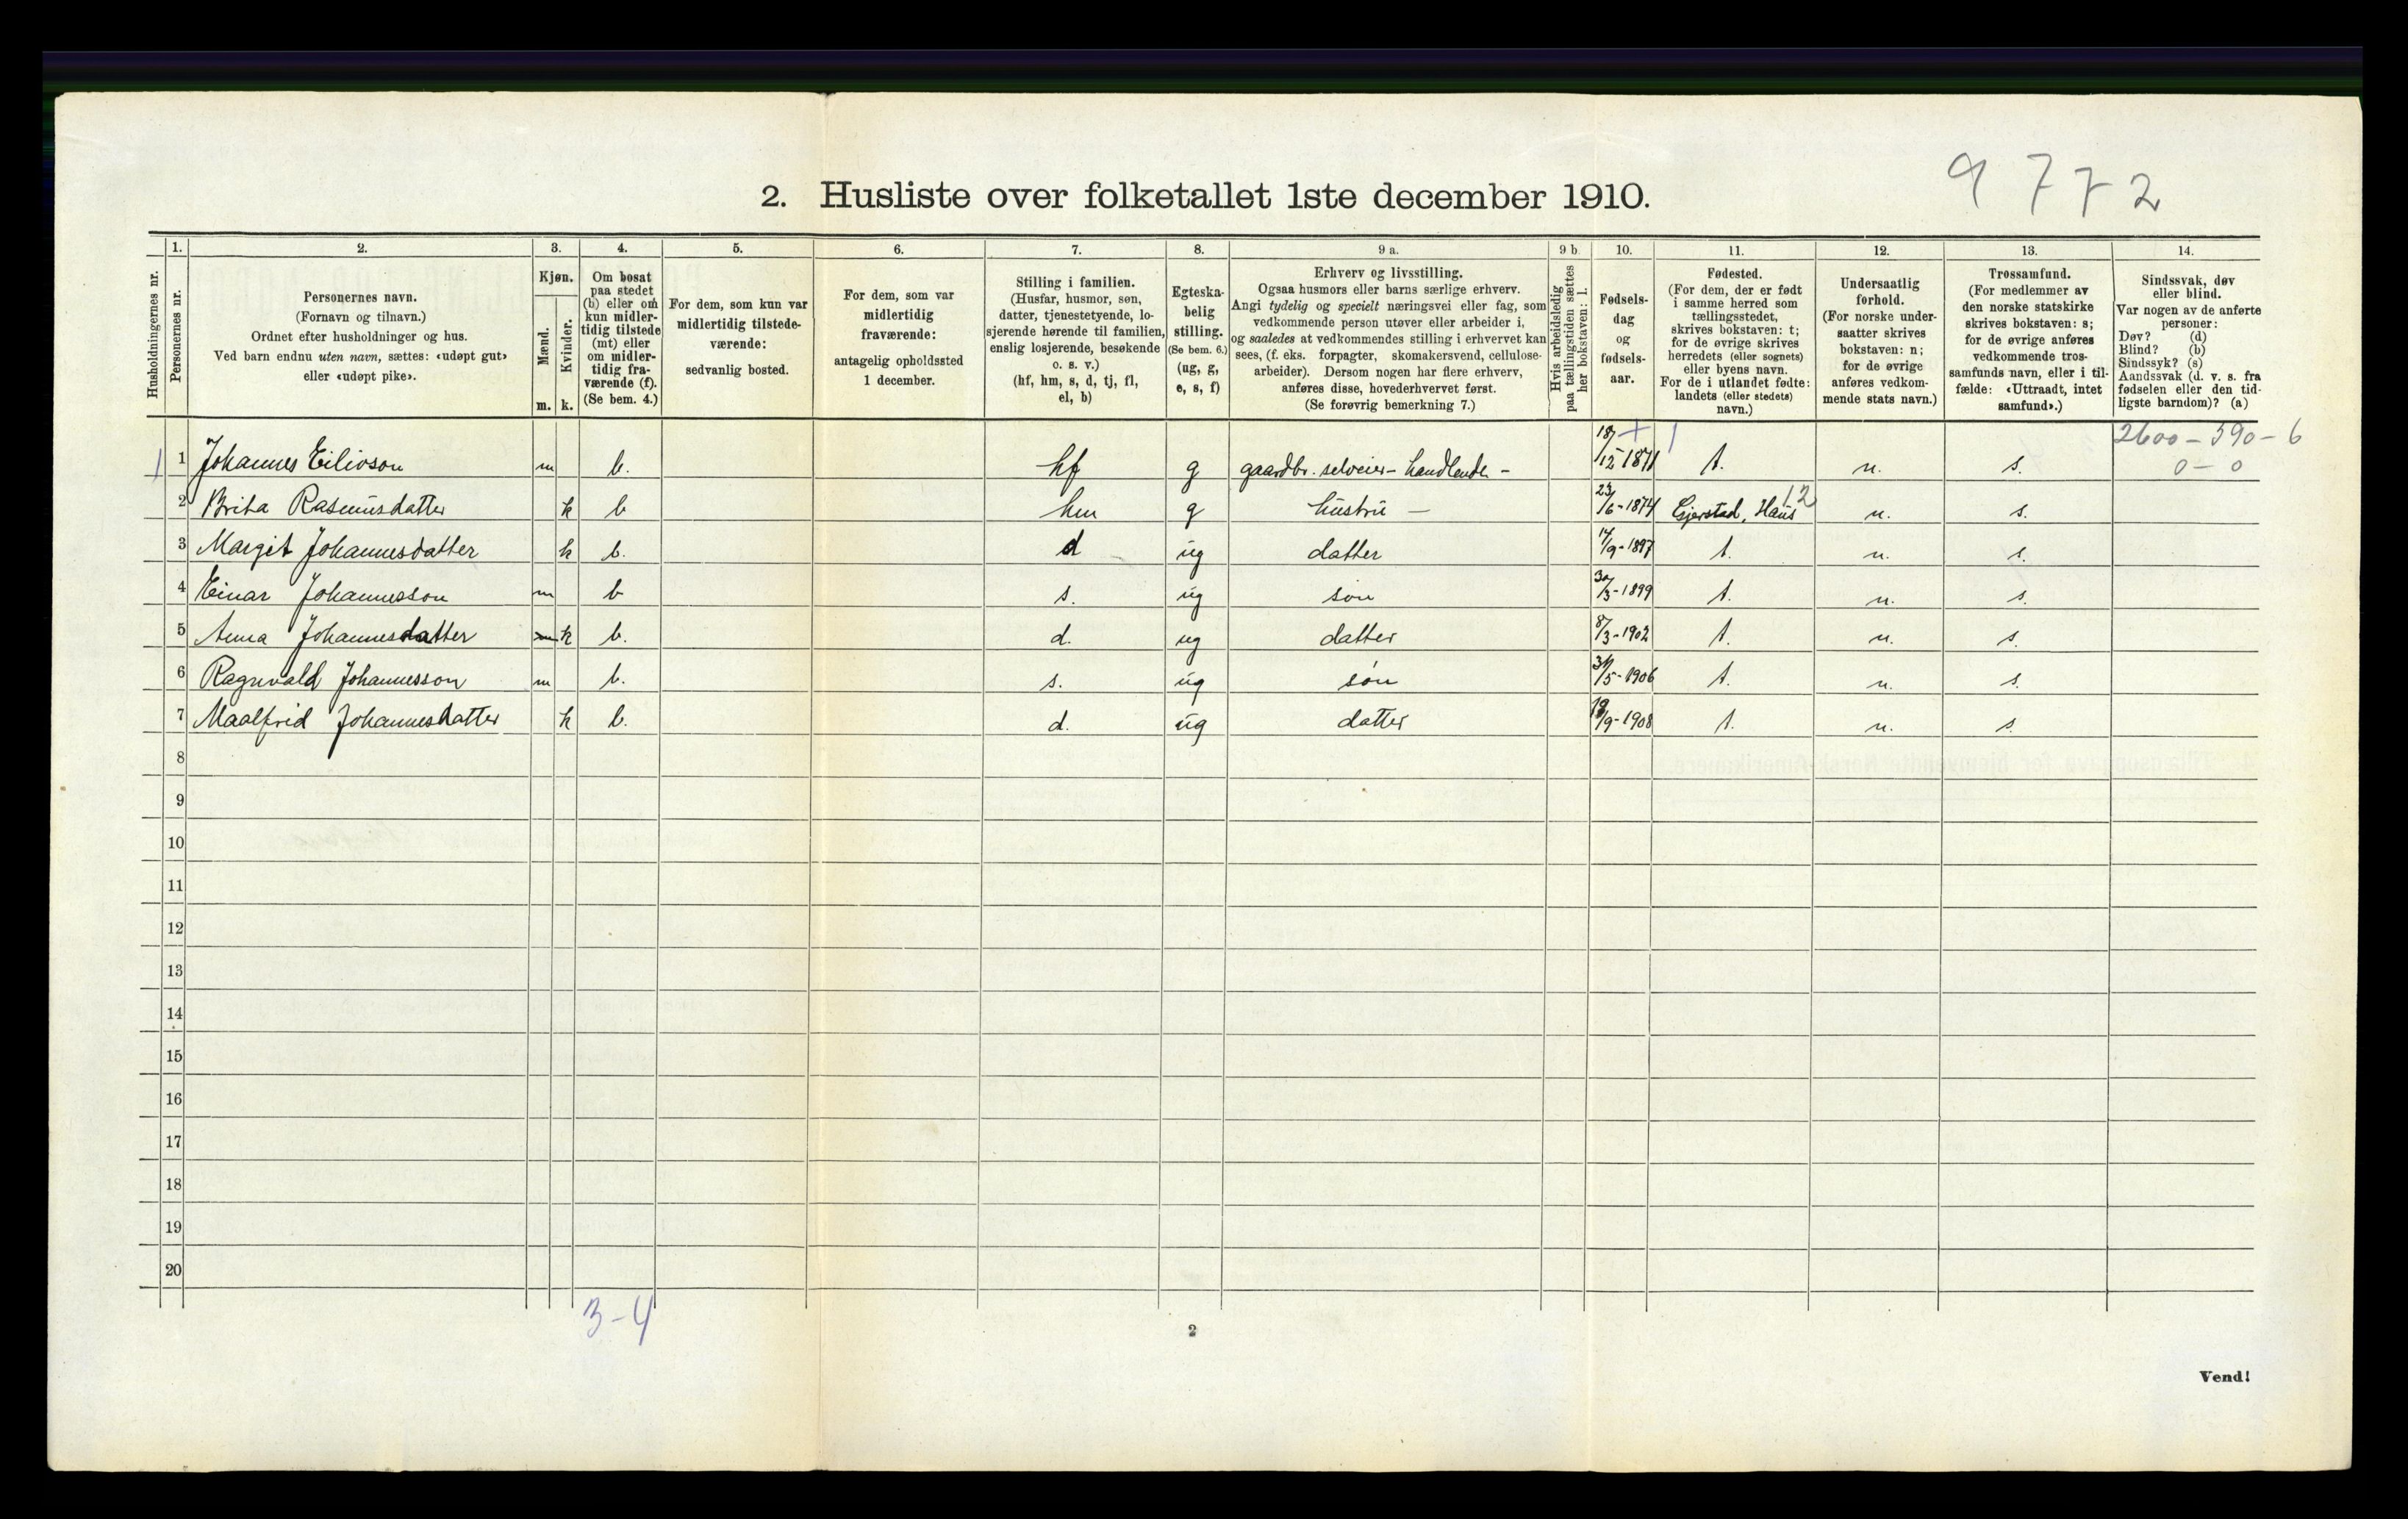 9 7 7 2
2. Husliste over folketallet 1ste december 1910.
Husholdningernes nr.
1. Personernes nr.
2. Personernes navn. (Fornavn og tilnavn.) Ordnet efter husholdninger og hus. Ved barn endnu uten navn, sættes: «udøpt gut» eller «udøpt pike».
3. Kjøn. Mænd. m. Kvinder. k.
4. Om bosat paa stedet (b) eller om kun midler-tidig tilstede (mt) eller om midler-tidig fra-værende (f). (Se bem. 4.)
5. For dem, som kun var midlertidig tilstede-værende: sedvanlig bosted.
6. For dem, som var midlertidig fraværende: antagelig opholdssted 1 december.
7. Stilling i familien. (Husfar, husmor, søn, datter, tjenestetyende, lo-sjerende hørende til familien, enslig losjerende, besøkende o. s. v.) (hf, hm, s, d, tj, fl, el, b)
8. Egteska-belig stilling. (Se bem. 6.) (ug, g, e, s, f)
9 a. Erhverv og livsstilling. Ogsaa husmors eller barns særlige erhverv. Angi tydelig og specielt næringsvei eller fag, som vedkommende person utøver eller arbeider i, og saaledes at vedkommendes stilling i erhvervet kan sees, (f. eks. forpagter, skomakersvend, cellulose-arbeider). Dersom nogen har flere erhverv, anføres disse, hovederhvervet først. (Se forøvrig bemerkning 7.)
9 b. Hvis arbeidsledig paa tællingstiden sættes her bokstaven: l.
10. Fødsels-dag og fødsels-aar.
11. Fødested. (For dem, der er født i samme herred som tællingsstedet, skrives bokstaven: t; for de øvrige skrives herredets (eller sognets) eller byens navn. For de i utlandet fødte: landets (eller stedets) navn.)
12. Undersaatlig forhold. (For norske under-saatter skrives bokstaven: n; for de øvrige anføres vedkom-mende stats navn.)
13. Trossamfund. (For medlemmer av den norske statskirke skrives bokstaven: s; for de øvrige anføres vedkommende tros-samfunds navn, eller i til-fælde: «Uttraadt, intet samfund».)
14. Sindssvak, døv eller blind. Var nogen av de anførte personer: Døv? (d) Blind? (b) Sindssyk? (s) Aandssvak (d. v. s. fra fødselen eller den tid-ligste barndom)? (a)
2600 - 390 - 6
0 - 0
1 1 Johannes Eilivson m b. hf g gaardbr. selveier - handlende - 18/12 1871 t. n. s.
2 Brita Rasmusdatter k b hm g hustru - 23/6 - 1874 Gjerstad, Haus 12 n. s.
3 Margit Johannesdatter k b. d ug datter 14/9 - 1897 t. n. s.
4 Einar Johannesson m b s. ug søn 30/3 - 1899 t. n. s.
5 Anna Johannesdatter m k b. d. ug datter 8/3 - 1902 t. n. s.
6 Ragnvald Johannesson m b. s. ug søn 31/5 - 1906 t. n. s.
7 Maalfrid Johannesdatter k b. d. ug datter /9 - 1908 t. n. s.
8
9
10
11
12
13
14
15
16
17
18
19
20
3-4
2
Vend!